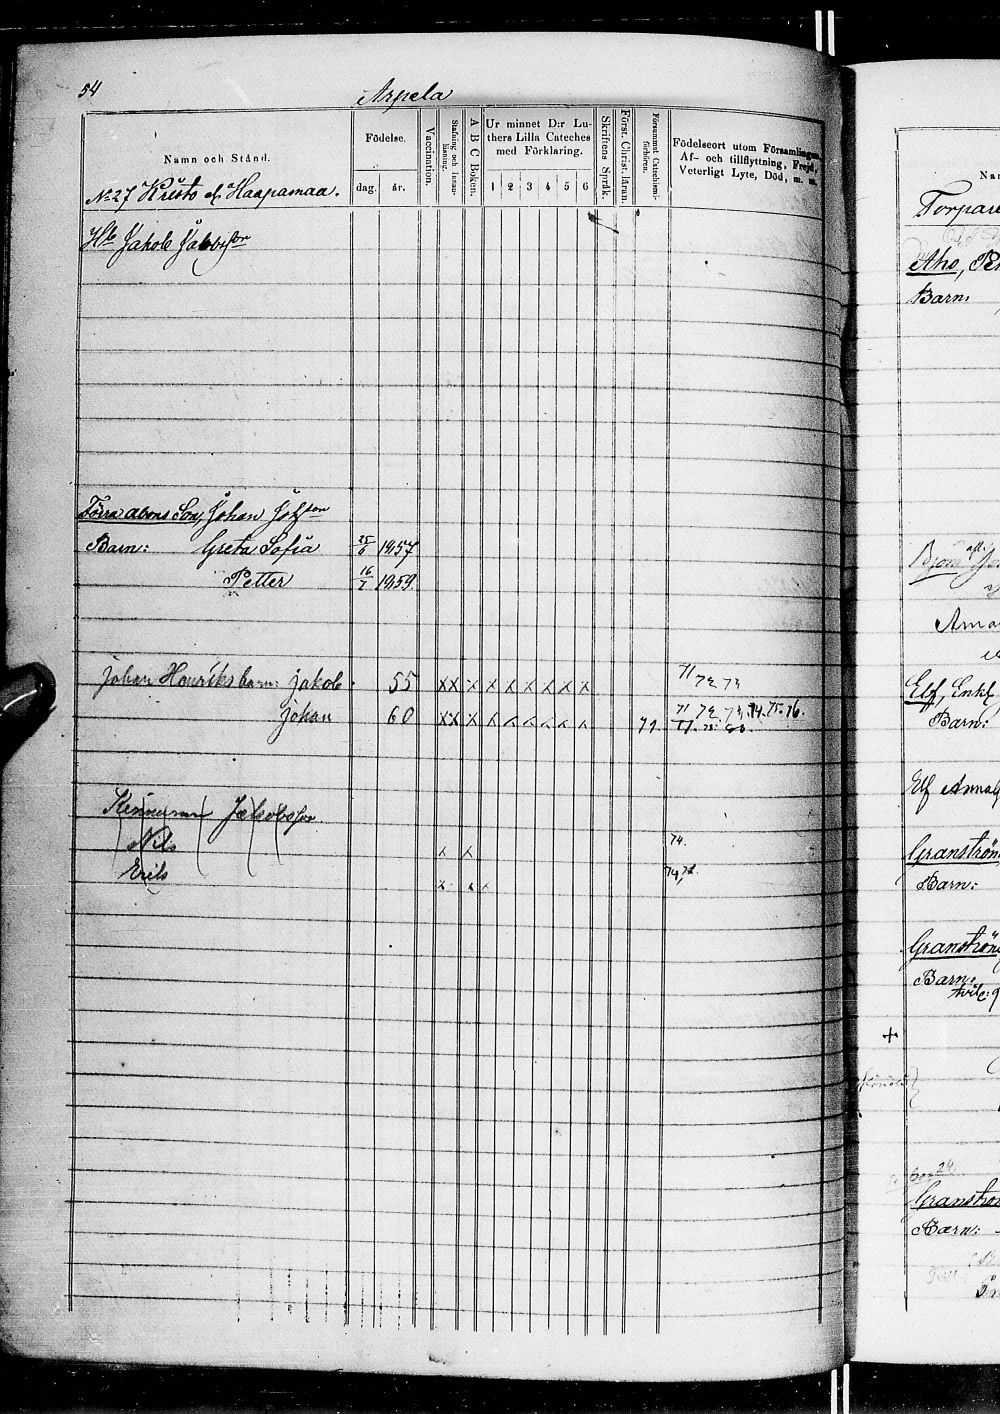 54
Arpela
Namn och Stånd.
Födelse.
dag. år.
Vaccination.
Stafning och Innanläsning.
A B C Boken.
Ur minnet D:r Luthers Lilla Cateches med Förklaring.
1 2 3 4 5 6
Skriftens Språk.
Först. Christ. läran.
Försummat Catechismiförhören.
Födelseort utom Församlingen,
Af- och tillflyttning, Frejd,
Veterligt Lyte, Död, m. m.
No 27 Kristo el. Haapamaa.
Jakob Jakobsson
Förra åbons Son, Johan
Barn: Greta Sofia 25/6 1957
Petter 16/7 1959.
Johan Henriks barn: Jakob 55 xx x x x x x x x 71 72 73
Johan 60 xx x x x x x x x 79. 71 72. 73. 74. 75. 76.
77. 78. 80.
Jakobsson
Nils x x 74.
Erik x x x 74,
Na
Torpare
Aho,
Barn:
Elf, Enkl
Barn:
Elf Anna
Granström
Barn:
Granström
Barn:
+
24.
Granström
Barn: